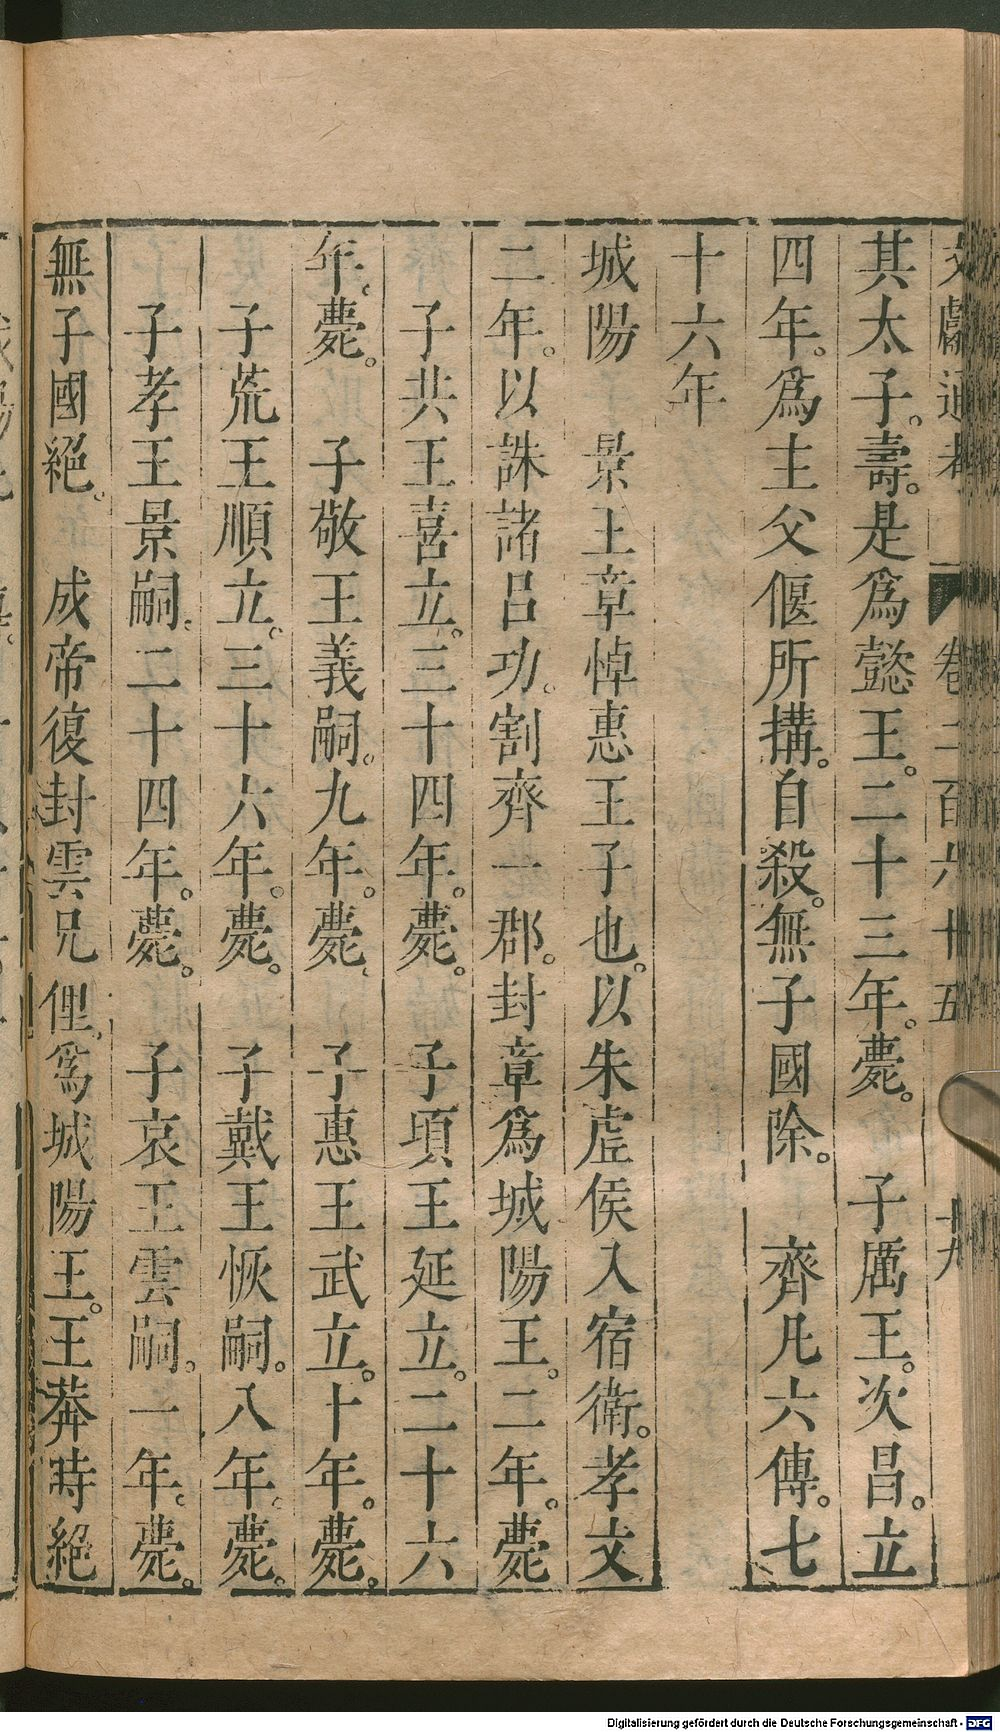 文獻通考 卷二百六十五 十九
其太子壽。是爲懿王。二十三年。薨。 子厲王。次昌。立
四年。爲主父偃所搆。自殺。無子國除。 齊凡六傳。七
十六年
城陽 景王章悼惠王子也。以朱虛侯入宿衛。孝文
二年。以誅諸呂功。割齊一郡。封章爲城陽王。二年。薨
子共王喜立。三十四年。薨。 子頃王延立。二十六
年。薨。 子敬王義嗣。九年。薨、 子惠王武立。十年。薨。
子荒王順立。三十六年。薨。 子戴王恢嗣。八年。薨。
子孝王景嗣。二十四年。薨。 子哀王雲嗣。一年。薨。
無子國絕。 成帝復封雲兄俚。爲城陽王。王莽時絕
Digitalisierung gefördert durch die Deutsche Forschungsgemeinschaft - DFG